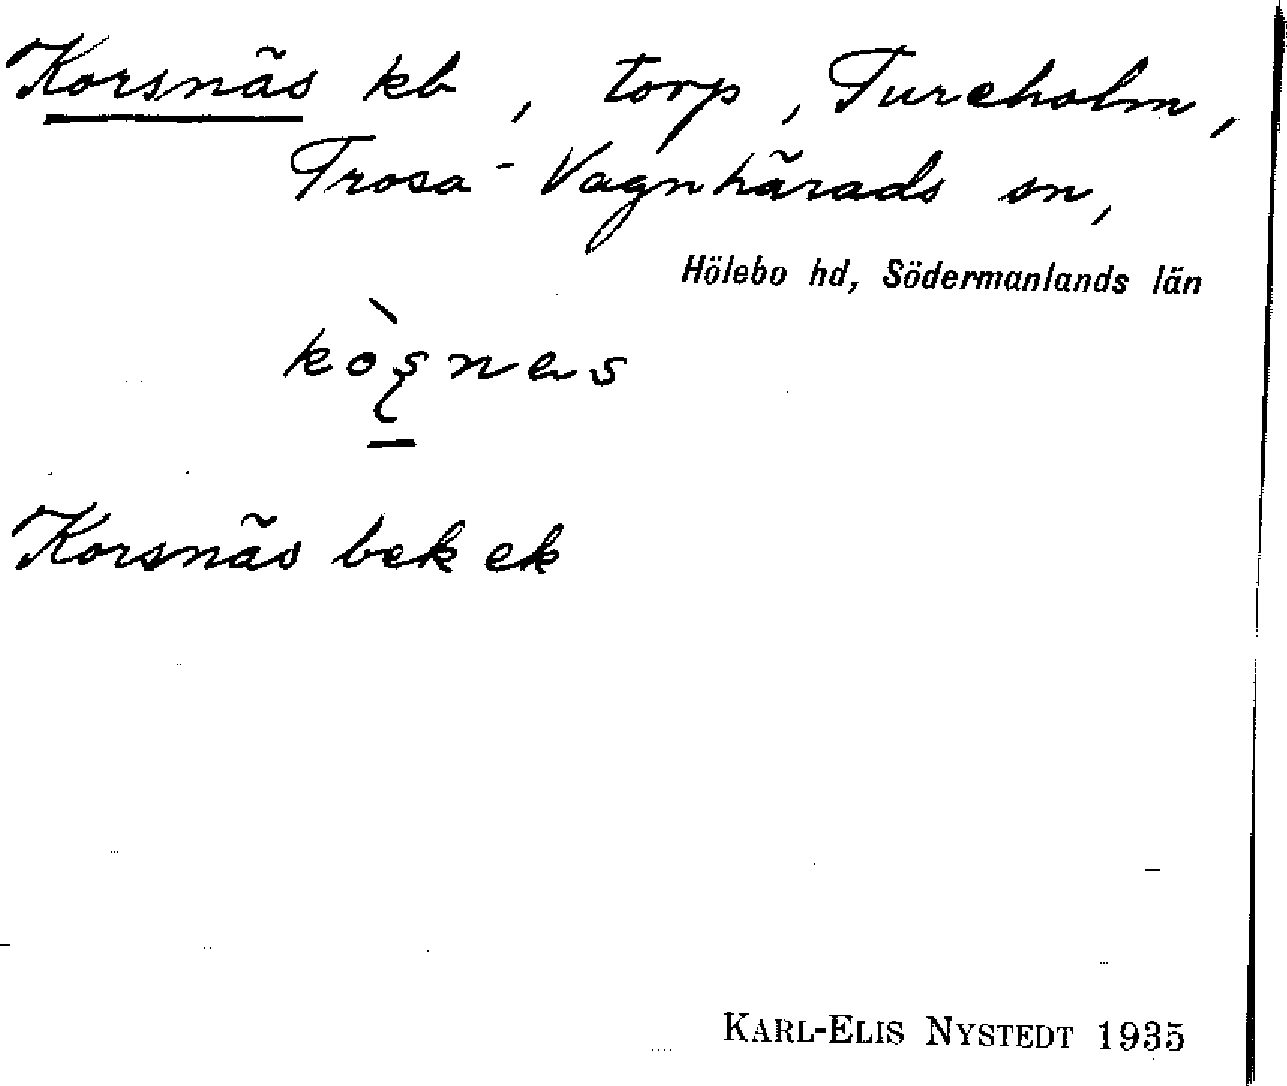 Korsnäs kb, torp, Tureholm,
Trosa-Vagnhärads sn,
Hölebo hd, Södermanlands län
kòşnes
Korsnäs bek ek
KARL-ELIS NYSTEDT 1935